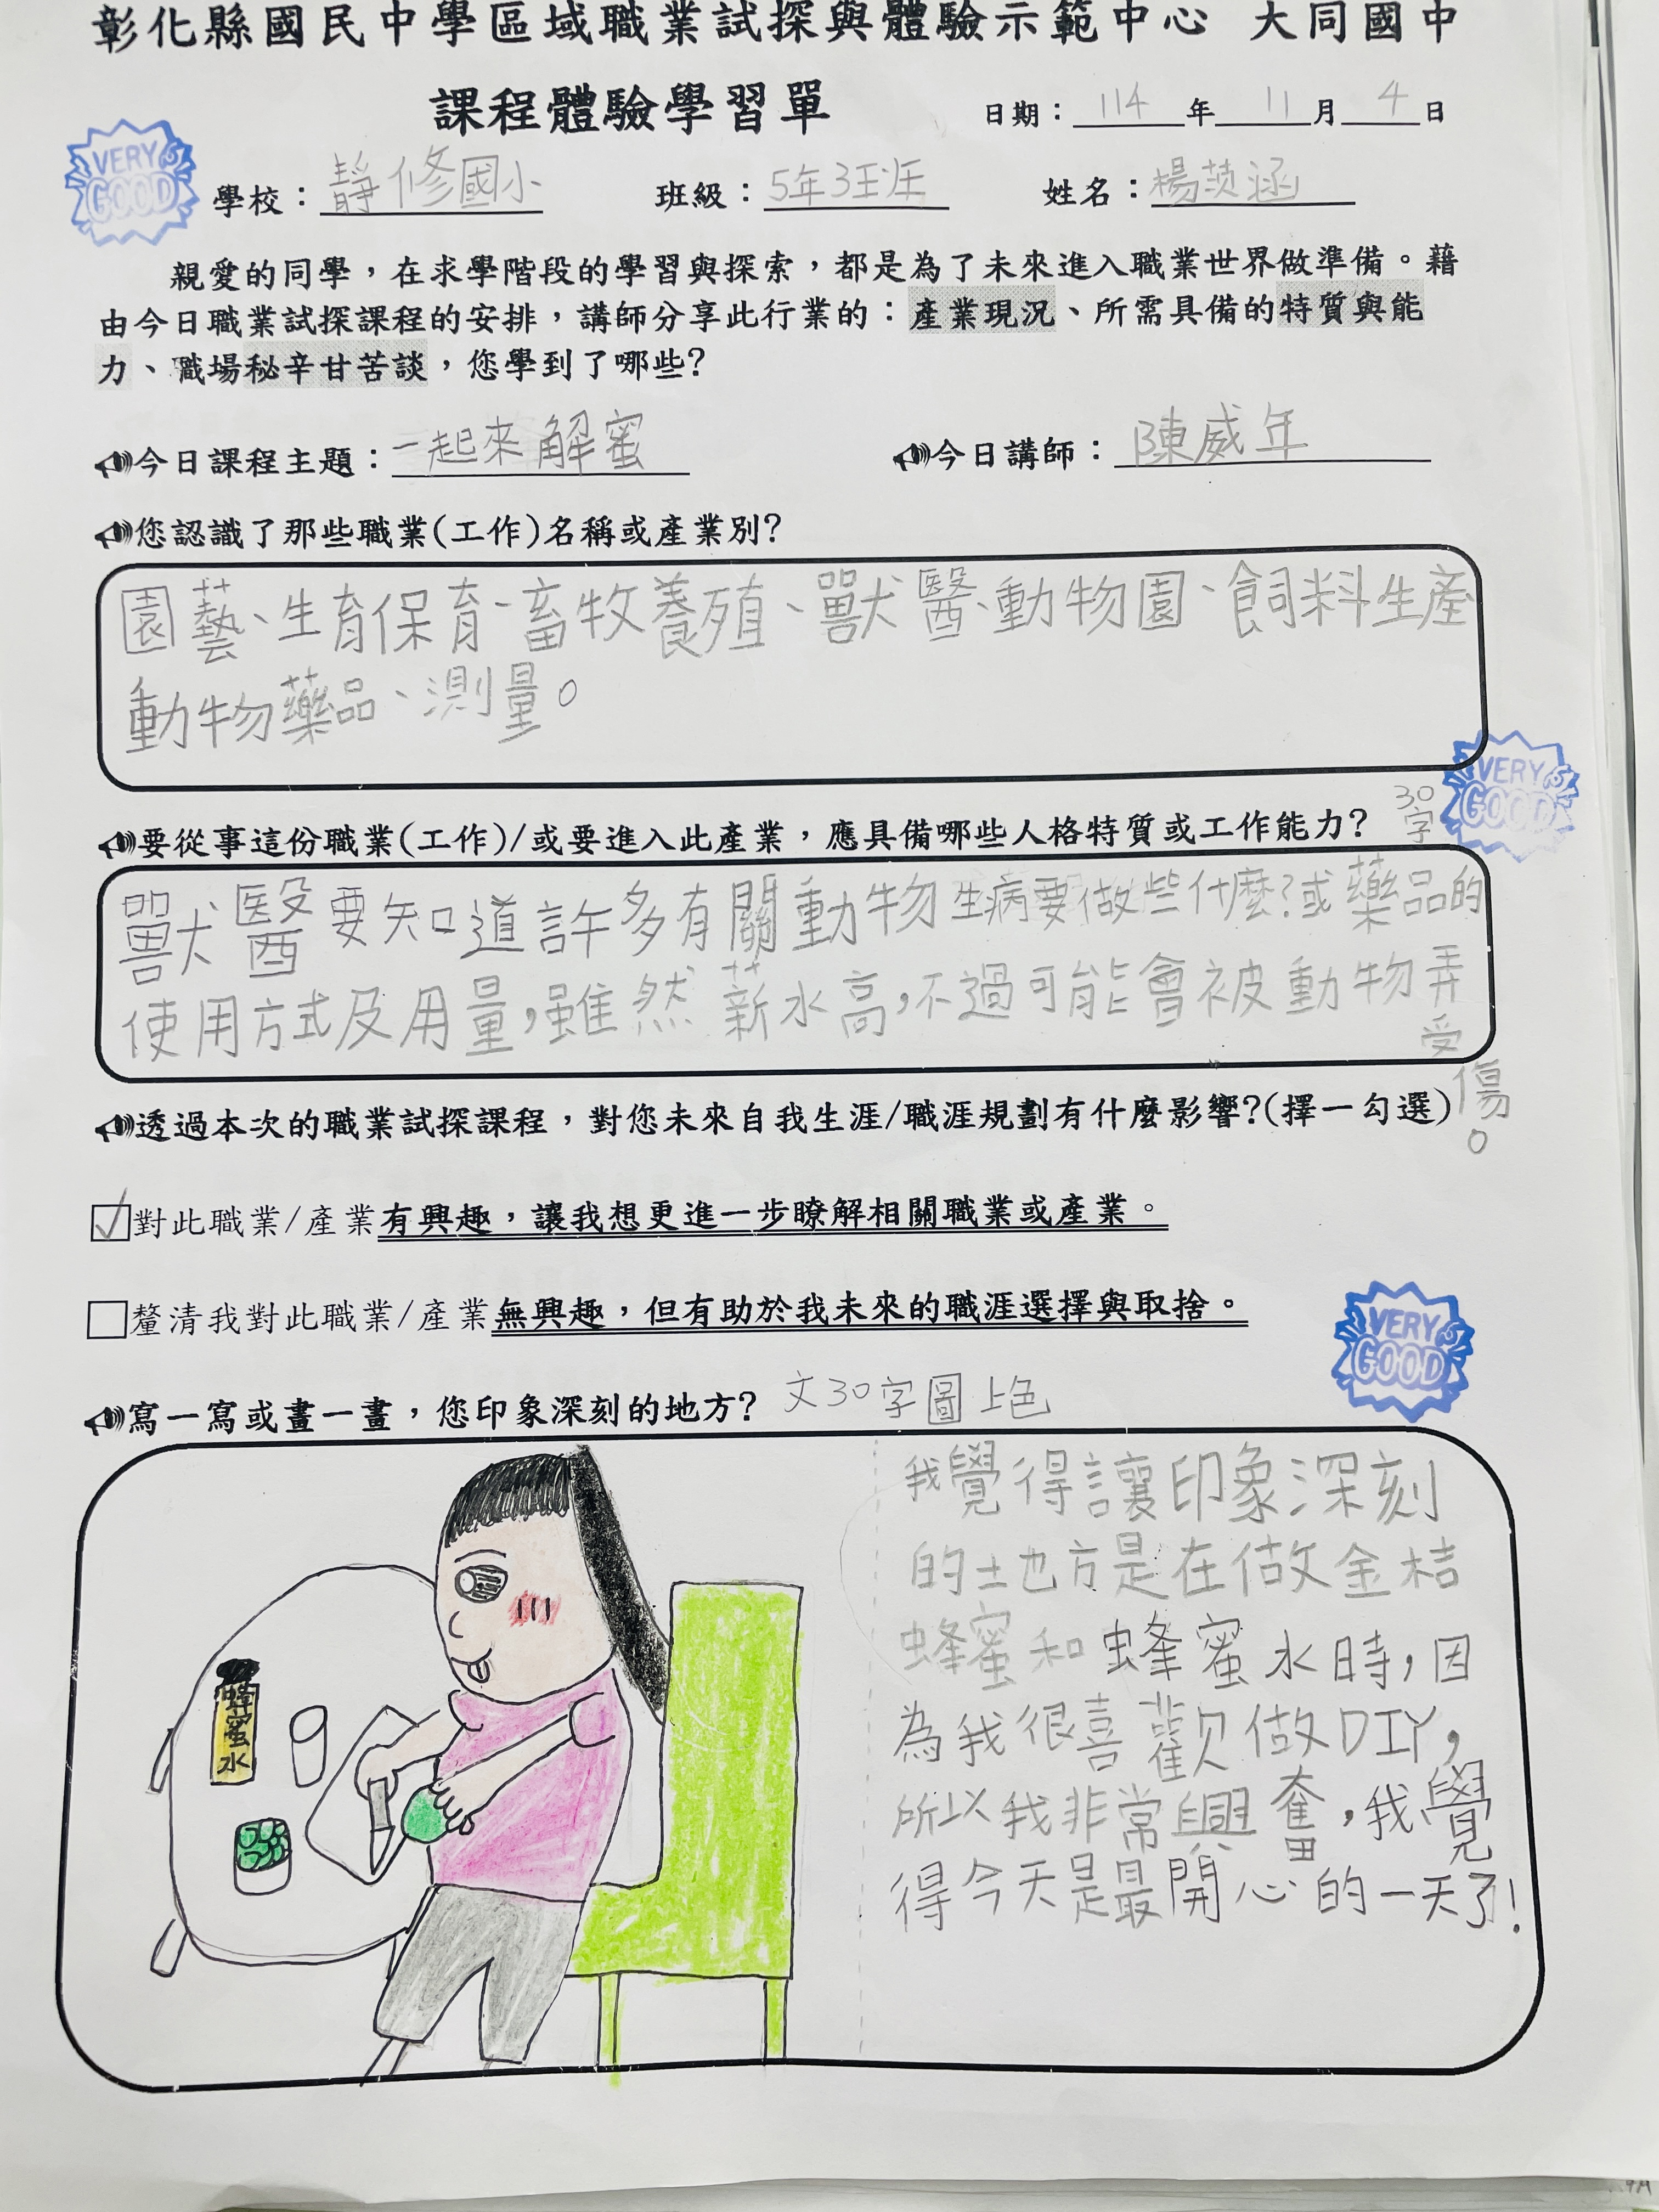 彰化縣國民中學區域職業試探與體驗示範中心 大同國中
課程體驗學習單
日期：114年11月4日
VERY GOOD
學校：靜修國小 班級：5年3班 姓名：楊涵
親愛的同學，在求學階段的學習與探索，都是為了未來進入職業世界做準備。藉
由今日職業試探課程的安排，講師分享此行業的：產業現況、所需具備的特質與能
力、職場秘辛甘苦談，您學到了哪些?
今日課程主題：一起來解蜜 今日講師：陳威年
您認識了那些職業(工作)名稱或產業別?
園藝、生育保育、畜牧養殖、獸醫、動物園、飼料生產
動物藥品、測量。
VERY GOOD
30字
要從事這份職業(工作)/或要進入此產業，應具備哪些人格特質或工作能力?
獸醫要知道許多有關動物生病要做些什麼?或藥品的
使用方式及用量,雖然薪水高,不過可能會被動物弄
受傷。
透過本次的職業試探課程，對您未來自我生涯/職涯規劃有什麼影響?(擇一勾選)
✓對此職業/產業有興趣，讓我想更進一步瞭解相關職業或產業。
□釐清我對此職業/產業無興趣，但有助於我未來的職涯選擇與取捨。
VERY GOOD
寫一寫或畫一畫，您印象深刻的地方? 文30字圖上色
蜂蜜水
我覺得讓印象深刻
的地方是在做金桔
蜂蜜和蜂蜜水時,因
為我很喜歡做DIY,
所以我非常興奮,我覺
得今天是最開心的一天了!